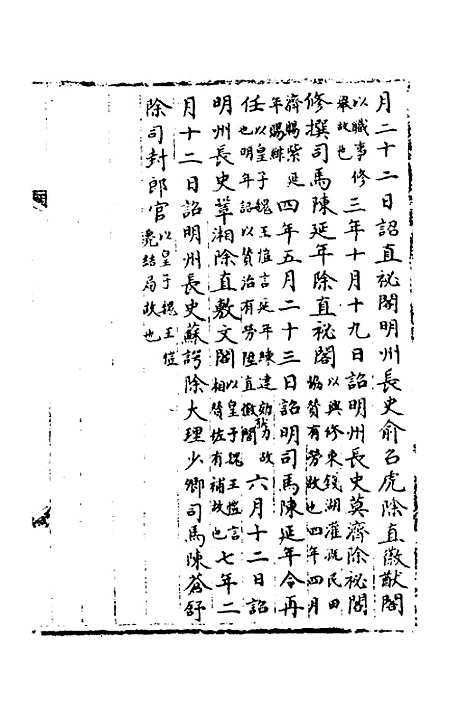 月二十二日詔直祕閣明州長史俞召虎除直徽猷閣
以職事修
舉故也
三年十月十九日詔明州長史莫濟除祕閣
修撰司馬陳延年除直祕閣
以興修東錢湖灌溉民田
協贊有勞故也四年四月
濟賜紫延
年賜緋
四年五月二十三日詔明司馬陳延年令再
任
以皇子魏王愷言延年練達勤勞故
也明年詔以贊治有勞陞直徽閣
六月十二日詔
明州長史葦湘除直敷文閣
以皇子魏王愷言
相贊佐有補故也
七年二
月十二日詔明州長史蘇諤除大理少卿司馬陳蒼舒
除司封郎官
以皇子魏王愷
薨結局故也